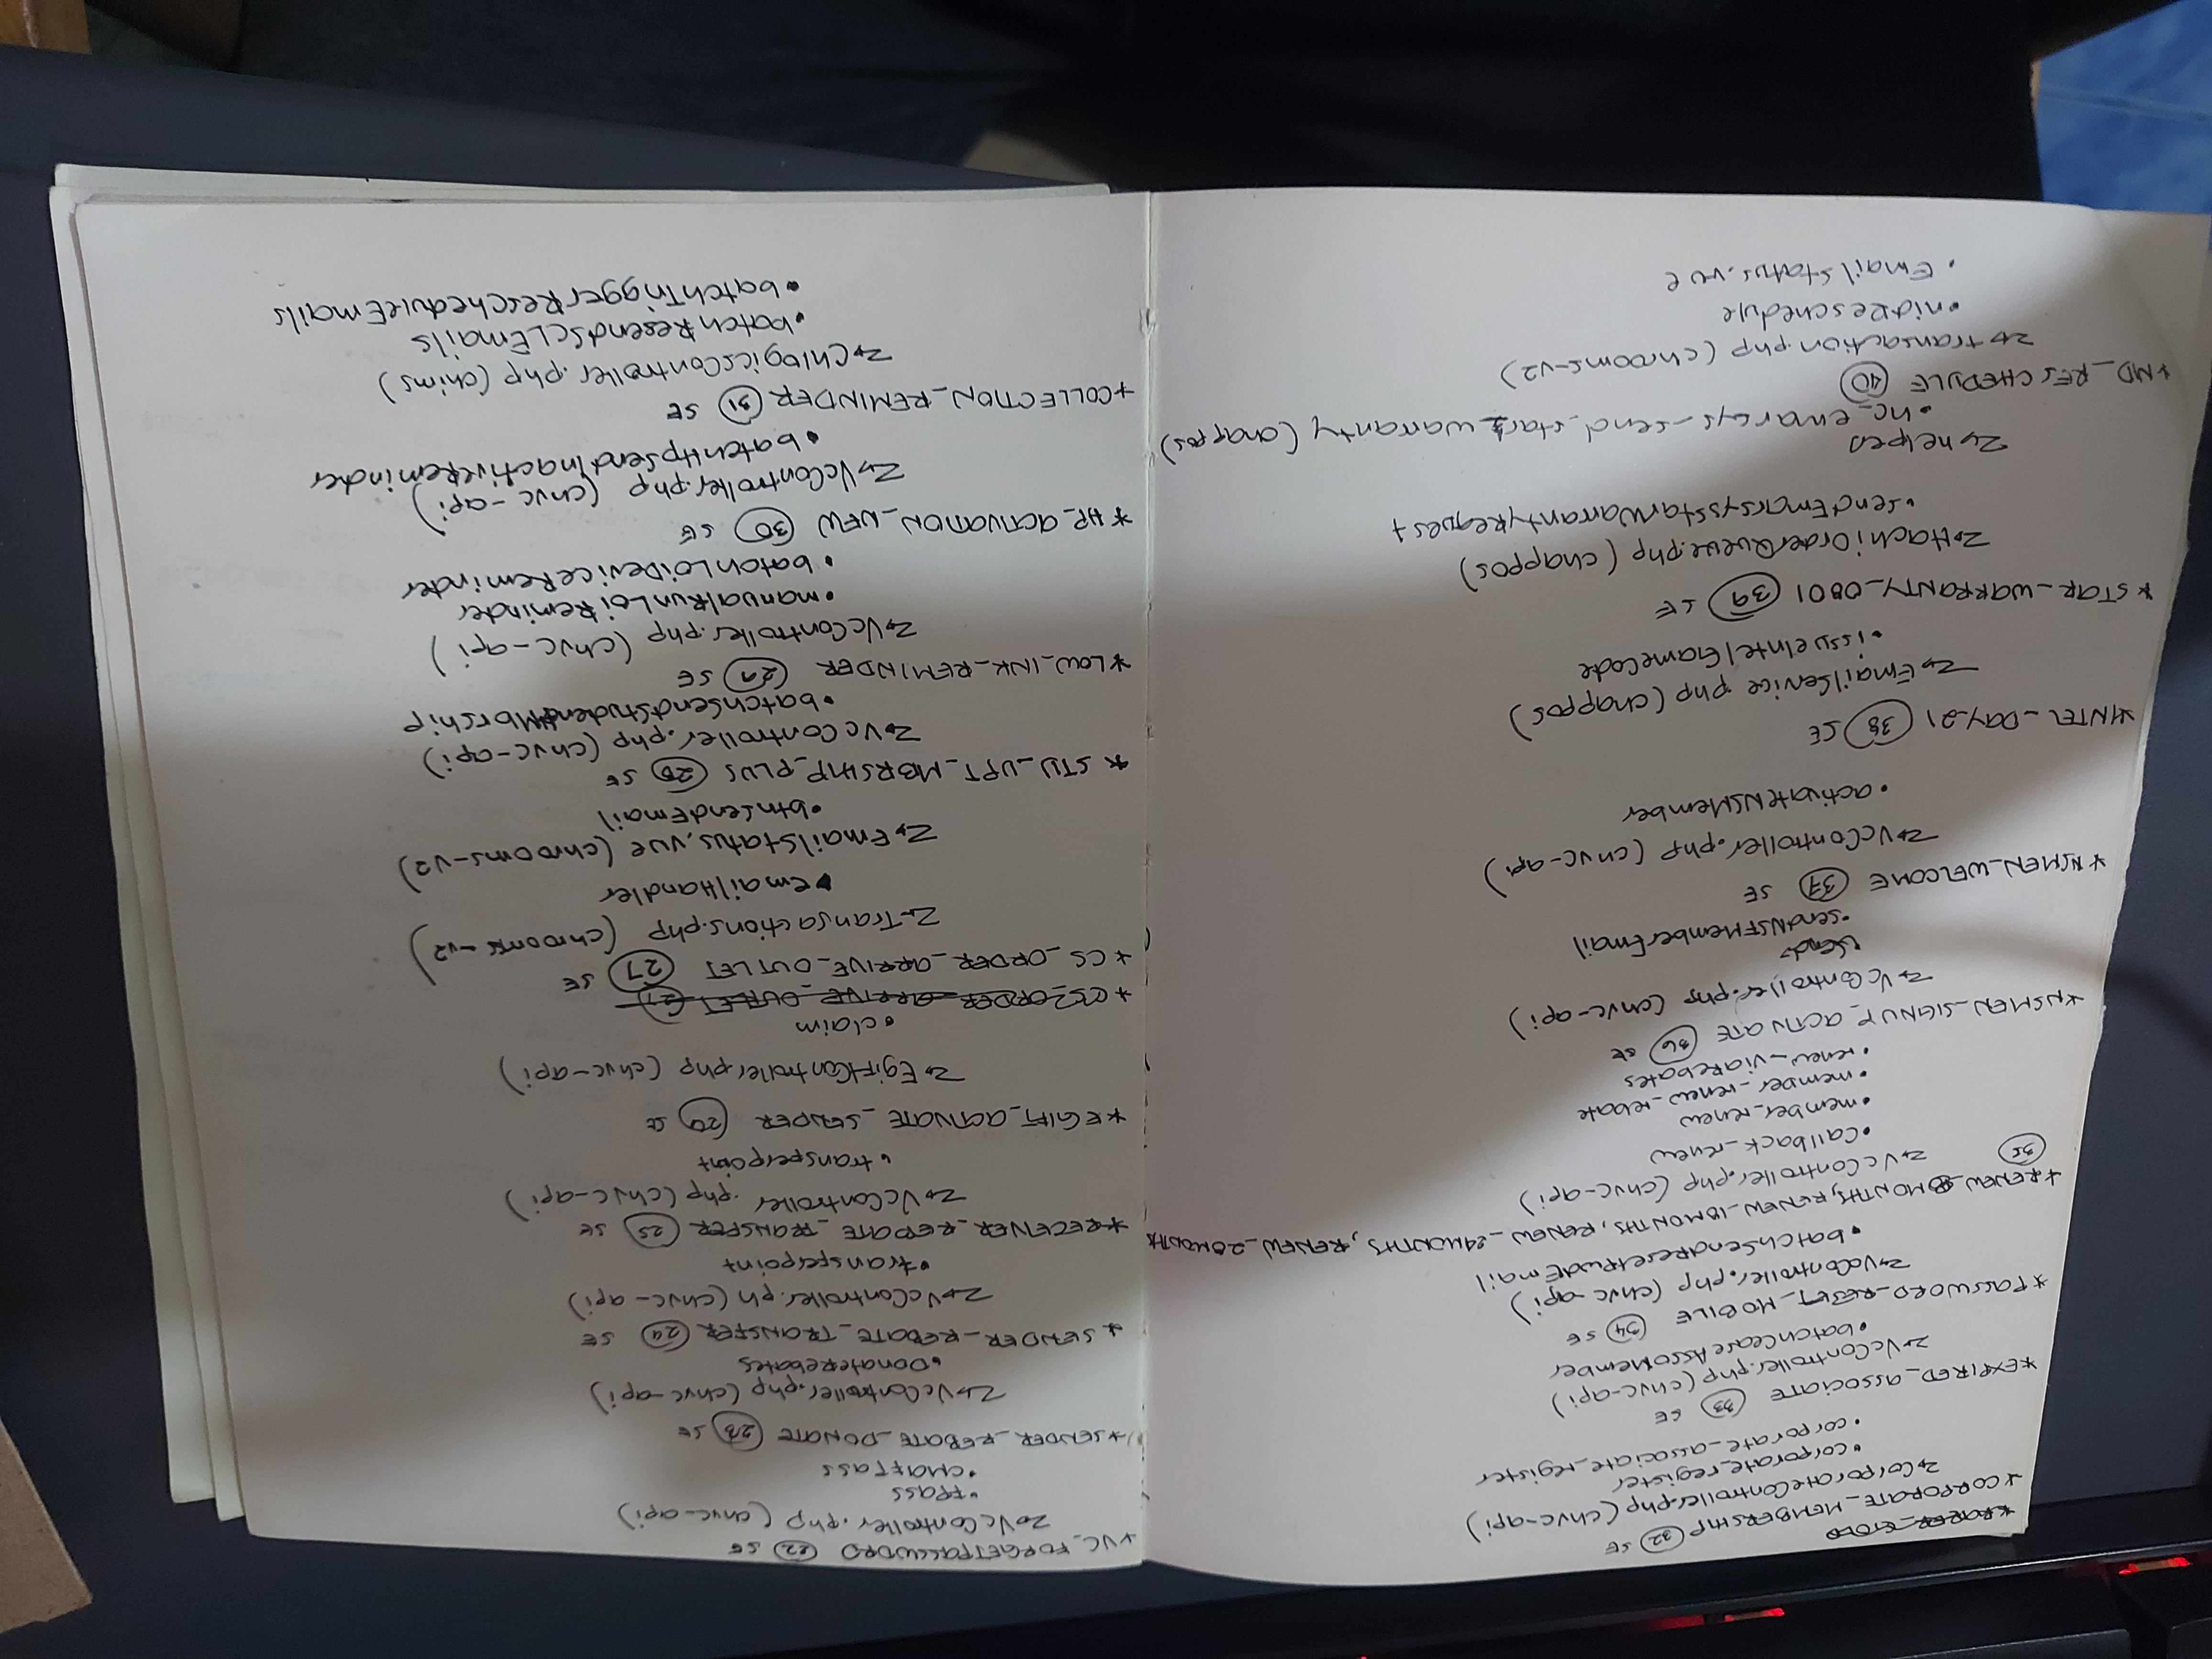 *CORPORATE_MEMBERSHIP (32) SE
↳CorporateController.php (chvc-api)
•corporate_register
•corporate_associate_register
*EXPIRED_ASSOCIATE (33) SE
↳VcController.php (chvc-api)
•batchCeaseAssoMember
*PASSWORD_RESET_MOBILE (34) SE
↳VcController.php (chvc-api)
•batchSendResetPwdEmail
*RENEW_8MONTHS, RENEW_18MONTHS, RENEW_24MONTHS, RENEW_28MONTHS
(35) ↳VcController.php (chvc-api)
•Callback_renew
•member_renew
•member_renew_rebate
•renew_viarebates
*NSMEN_SIGNUP_ACTIVATE (36) SE
↳VcController.php (chvc-api)
•sendNSFMemberEmail
*NSMEN_WELCOME (37) SE
↳VcController.php (chvc-api)
•activateNSMember
*INTEL_DAY_21 (38) SE
↳EmailService.php (chappos)
•issueIntelGameCode
*STAR_WARRANTY_0801 (39) SE
↳HachiOrderQueue.php (chappos)
•sendEmarsysStarWarrantyRequest
↳helper
•hc_emarsys_send_star_warranty (chappos)
*MD_RESCHEDULE (40)
↳transaction.php (chrooms-v2)
•nidReschedule
•Emailstatus.vue
*VC_FORGETPASSWORD (22) SE
↳VcController.php (chvc-api)
•fPass
*SENDER_REBATE_DONATE (23) SE
↳VcController.php (chvc-api)
•Donaterebates
*SENDER_REBATE_TRANSFER (24) SE
↳VcController.ph (chvc-api)
•transferpoint
*RECEIVER_REBATE_TRANSFER (25) SE
↳VcController.php (chvc-api)
•transferpoint
*EGIFT_ACTIVATE_SENDER (26) SE
↳EgiftController.php (chvc-api)
•claim
*CS_ORDER_ARRIVE_OUTLET (27
*CS_ORDER_ARRIVE_OUTLET (27) SE
↳Transactions.php (chrooms-v2)
•emailHandler
↳EmailStatus.vue (chrooms-v2)
•btnSendEmail
*STU_UPT_MBRSHP_PLUS (28) SE
↳VcController.php (chvc-api)
•batchSendStudentMbrship
*LOW_INK_REMINDER (29) SE
↳VcController.php (chvc-api)
•manualRunLoiReminder
•batchLoiDeviceReminder
*HP_ACTIVATION_NEW (30) SE
↳VcController.php (chvc-api)
•batchHpSendInactiveReminder
*COLLECTION_REMINDER (31) SE
↳ChlogicsController.php (chims)
•batchResendSCLEmails
•batchTriggerRescheduleEmails